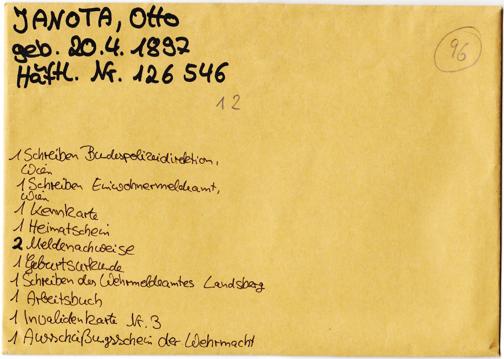 JANOTA, Otto
geb. 20.4.1897
Häftl. Nr. 126 546
96
12
1 Schreiben Bundespolizeidirektion,
Wien
1 Schreiben Einwohnermeldeamt,
Wien
1 Kennkarte
1 Heimatschein
2 Meldenachweise
1 Geburtsurkunde
1 Schreiben des Wehrmeldeamtes Landsberg
1 Arbeitsbuch
1 Invalidenkarte Nr. 3
1 Ausschließungsschein der Wehrmacht